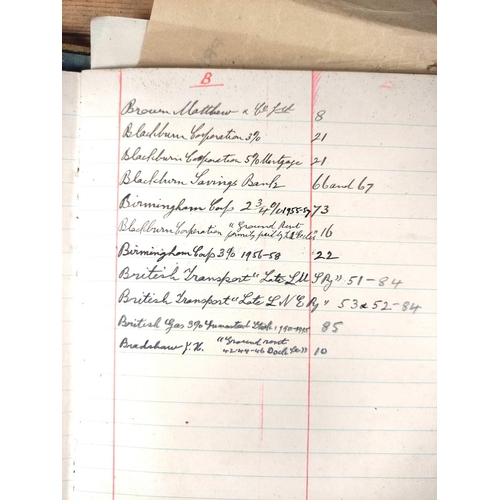 B
Brown Matthew & Co Ltd 8
Blackburn Corporation 3% 21
Blackburn Corporation 5% Mortgage 21
Blackburn Savings Bank 66 and 67
Birmingham Corp 2 3/4 % 1955-57 73
Blackburn Corporation "Ground Rent 16
Birmingham Corp 3% 1956-58 22
British Transport "Late L M S Ry" 51-84
British Transport "Late L N E Ry" 53 & 52-84
British Gas 3% Guaranteed Stock 1990-1995 85
Bradshaw J. H. "Ground rent
42-44-46 Dock St" 10